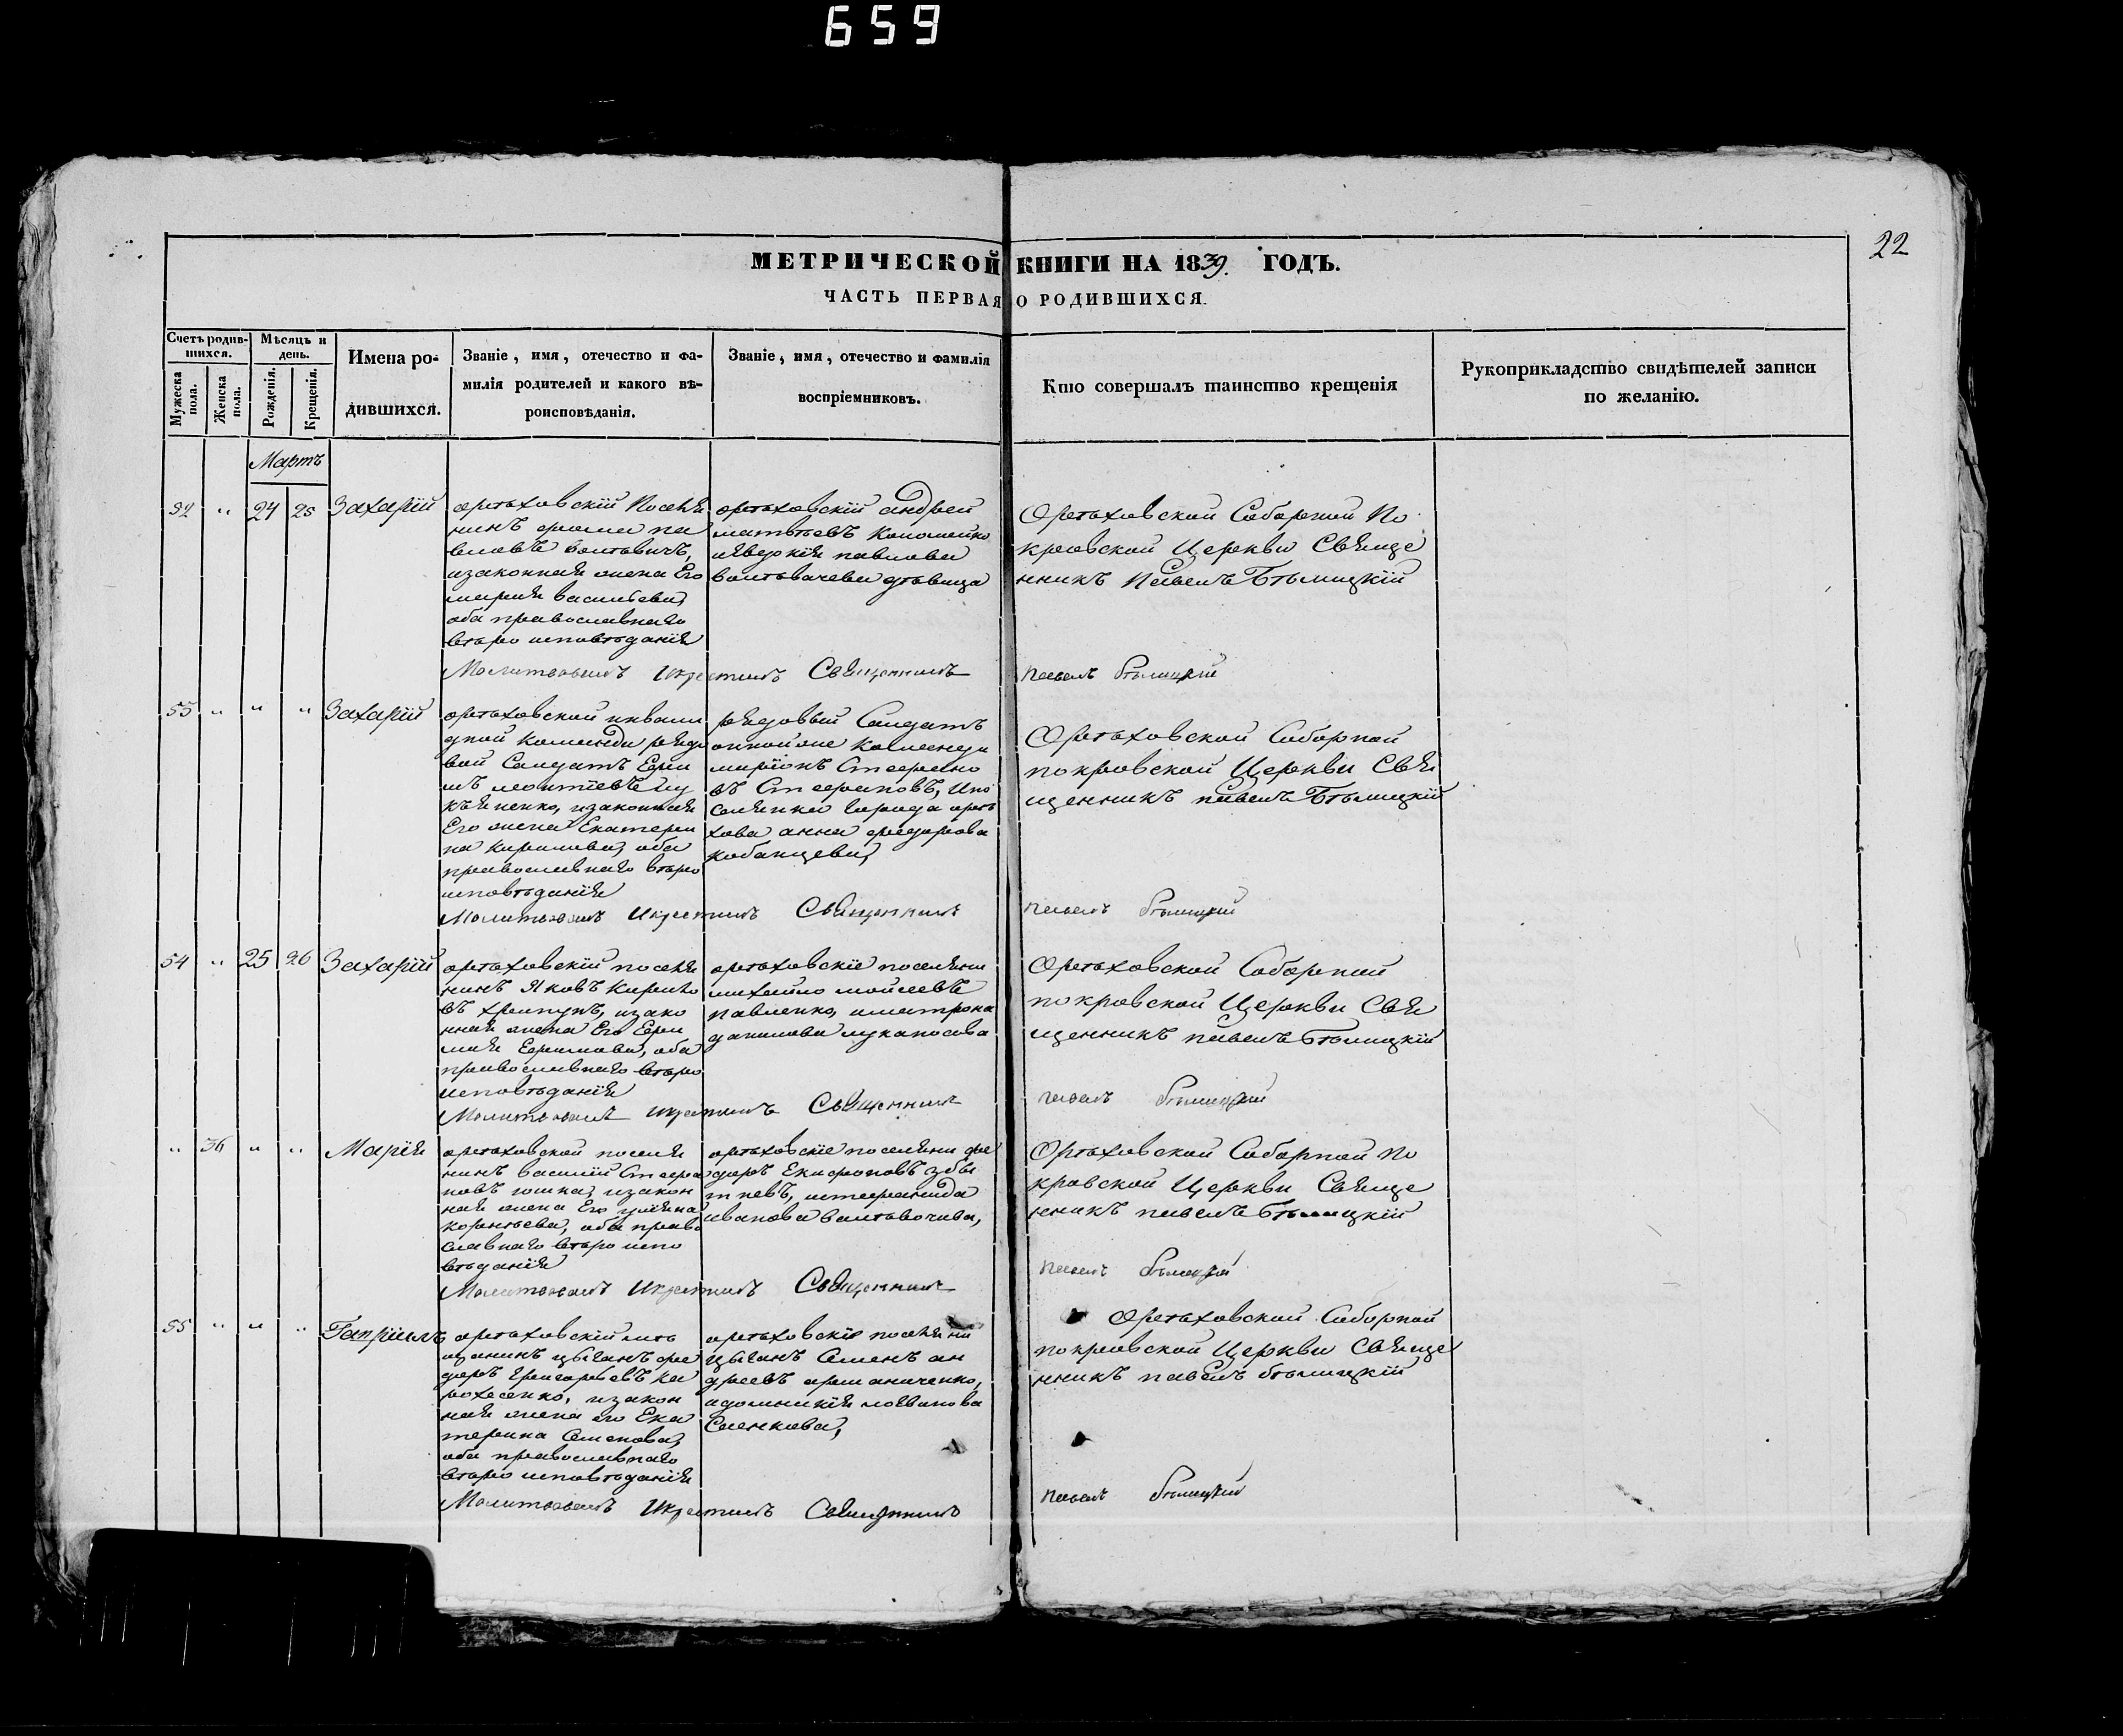 659
22
МЕТРИЧЕСКОЙ КНИГИ НА 1839. ГОДЪ.
ЧАСТЬ ПЕРВАЯ О РОДИВШИХСЯ.
Счетъ родив-
шихся.
Мужеска
пола.
Женска
пола.
Мѣсяцъ и
день.
Рожденія.
Крещенія.
Имена ро-
дившихся.
Званіе, имя, отечество и фа-
милія родителей и какого вѣ-
роисповѣданія.
Званіе, имя, отечество и фамилія
воспріемниковъ.
Кто совершалъ таинство крещенія
Рукоприкладство свидѣтелей записи
по желанію.
Мартъ
52 " 24 25 Захарій
орѣховскій Поселя
нинъ фома па
вловъ волтавичъ,
изаконная жена Его
мария васильева,
оба православнаго
вѣро исповѣданія
орѣховскій андрей
матвѣевъ Коломойко
павлова
дѣвица
Орѣховской Соборной По
кровской Церкви Свяще
нникъ Павелъ Бѣлицкій
Молитвовалъ Икрестилъ Священникъ Павелъ Бѣлицкій
53 " " " Захарій
орѣховской инвали
дной Команди рядо
вой Салдатъ Ефи
мъ леонтіевъ лу
кяненко, изаконная
Его жена Екатери
на кирилова, оба
православнаго вѣро
исповѣданія
рядовый Салдатъ
оной же Команди
Стефано
въ Стефановъ, Ипо
селянка Города орѣ
хова анна федорова
кобанцева,
Орѣховской Соборной
покровской Церкви Свя
щенникъ павелъ Бѣлицкій
Молитвовалъ Икрестилъ Священникъ павелъ Бѣлицкій
54 " 25 26 Захарій
орѣховскій поселя
нинъ Яковъ Кирило
въ хрипунъ, изако
нная жена Его Ефи
мия Ефимова, оба
православнаго вѣро
исповѣданія
орѣховскіе поселяни
михайло мойсеевъ
павленко, иматрона
данилова луканосова
Орѣховской Соборной
покровской Церкви Свя
щенникъ павелъ Бѣлицкій
Молитвовалъ икрестилъ Священникъ павелъ Бѣлицкій
" 36 " " Марія
орѣховской поселя
нинъ василій Стефа
новъ юшка, изакон
ная жена Его уляна
корнѣева, оба право
славнаго вѣро испо
вѣданія
орѣховскіе поселяни фе
доръ
ивапова
Орѣховской Соборной По
кровской Церкви Свяще
нникъ павелъ Бѣлицкій
Молитвовалъ Икрестилъ Священникъ павелъ Бѣлицкій
55 " " " Гавріилъ
орѣховскій мѣ
щанинъ цыганъ фе
доръ Григорьевъ
изакон
ная жена его Ека
терина Семенова,
оба православнаго
вѣро исповѣданія
орѣховскіе поселяни
цыганъ Семенъ ан
дреевъ
Орѣховской Соборной
покровской Церкви Свяще
нникъ павелъ бѣлицкій
Молитвовалъ Икрестилъ Священникъ павелъ бѣлицкій